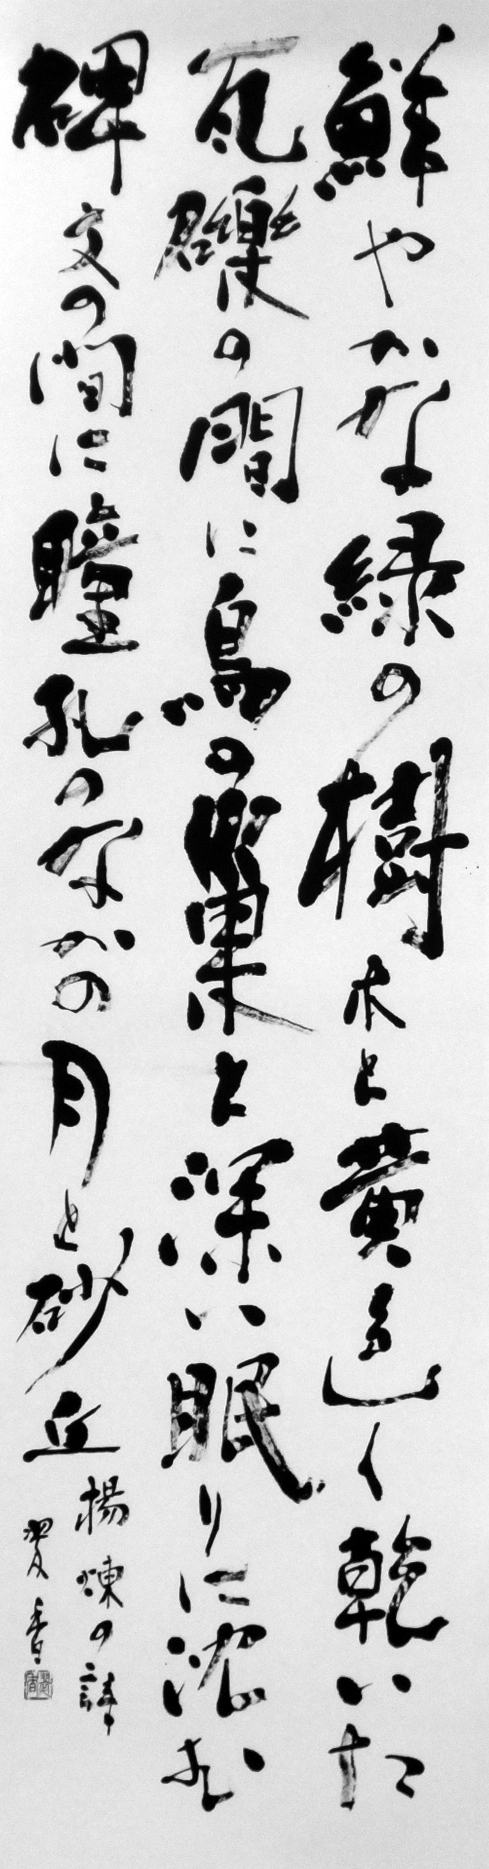 鮮やかな緑の樹木と黄色く乾いた
瓦礫の間に鳥の巣と深い眠りに沈む
碑文の間に瞳孔のなかの月と砂丘
楊煉の詩
翠香